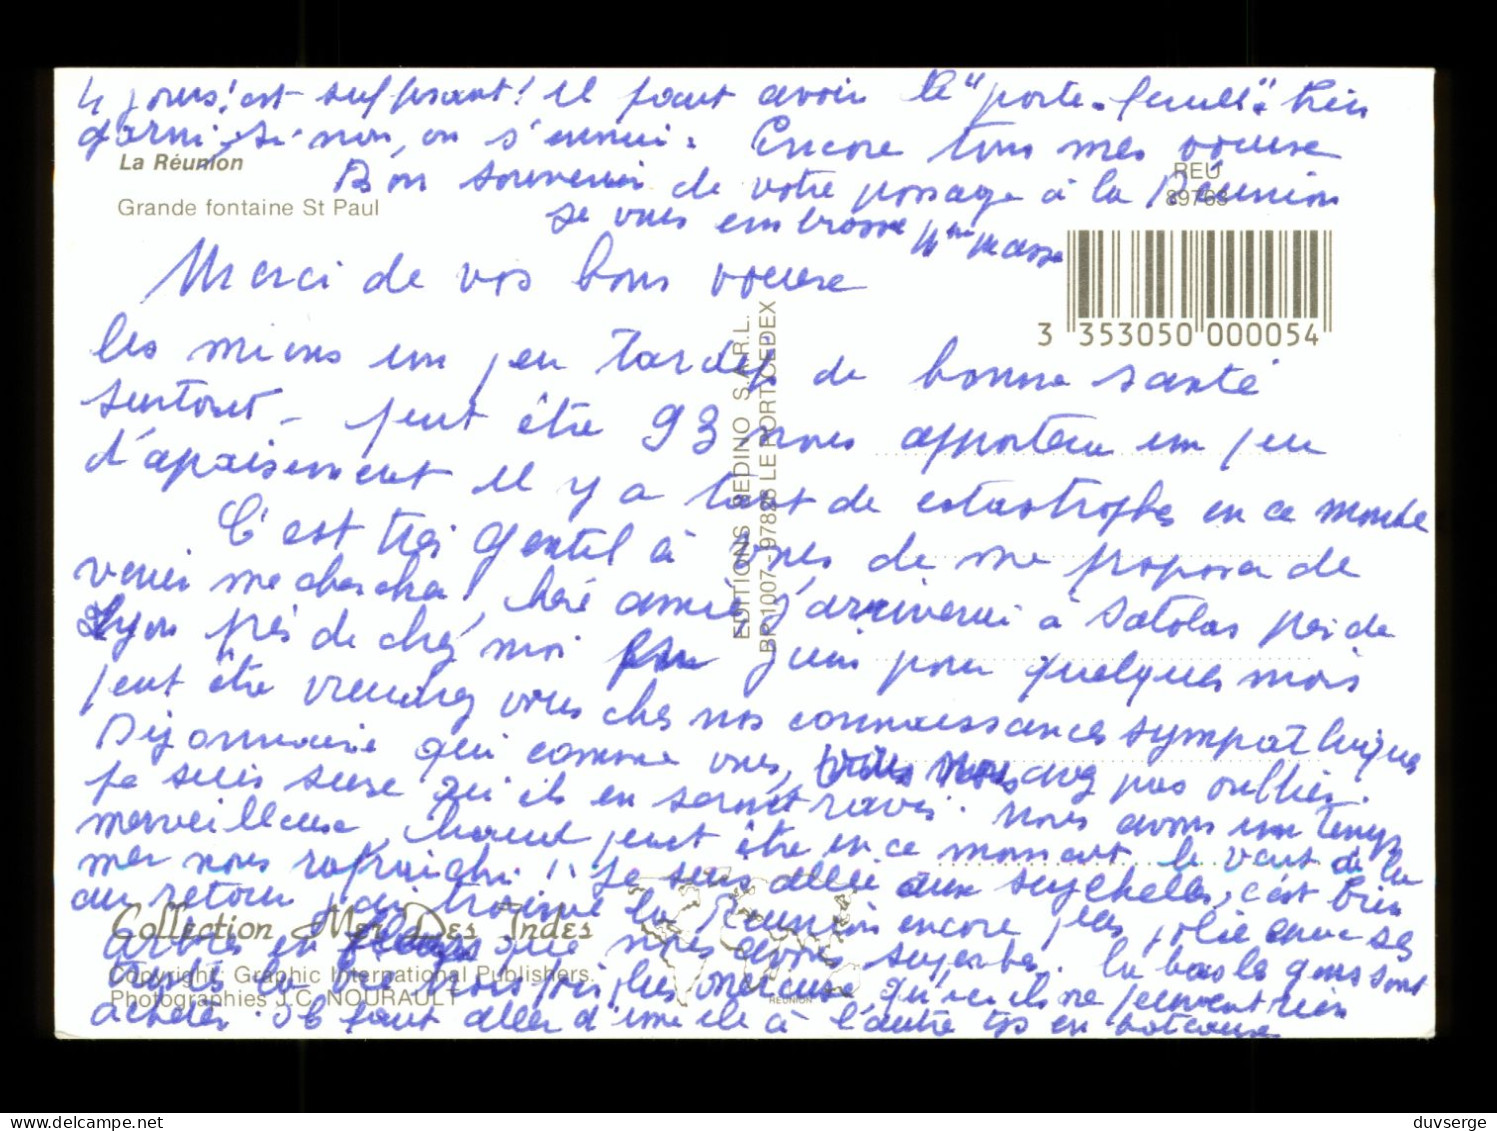 4 jours c'est suffisant! il faut avoir le "porte-feuille" bien
garni, si-non, on s'ennui. Encore tous mes voeux
La Réunion
Bon souvenir de votre passage à la Réunion
REU
89763
Grande fontaine St Paul
je vous embrasse Mme Masse
Merci de vos bons voeux
3 353050 000054
les miens un peu tardifs de bonne santé
surtout - peut être 93 nous apportera un peu
d'apaisement il y a tant de catastrophes en ce monde
C'est très gentil à vous de me proposer de
venir me chercher, chère amie j'arriverai à Satolas près de
Lyon près de chez moi Juin pour quelques mois
peut être viendrez vous chez nos connaissances sympathiques
Dijonnaise qui comme vous, nous avez pas oublier.
je suis sure qu'ils en seront ravis. Nous avons un temps
merveilleux, chaud peut être en ce moment le vent de la
mer nous rafraichi!! Je suis allée aux seychelles, c'est bien
au retour j'ai trouvé la Réunion encore plus jolie avec ses
arbres en fleurs que nous avons superbe. là bas les gens sont
la vie trois fois plus onereuse, qu'ici ils ne peuvent rien
acheter. Il faut aller d'une ile à l'autre en bateau
Collection Mer Des Indes
Copyright: Graphic International Publishers.
Photographies J.C. NOURAULT
REUNION
EDITIONS REDINO S.A.R.L.
BP 1007 - 97828 LE PORT CEDEX
delcampe.net
duvserge